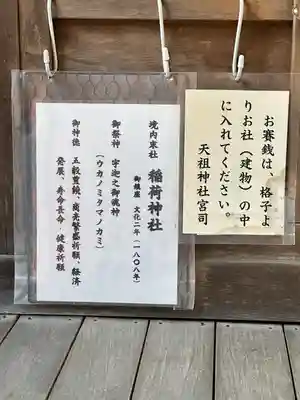 境内末社 稲荷神社
御鎮座 文化二年(一八〇八年)
御祭神 宇迦之御魂神
(ウカノミタマノカミ)
御神徳 五穀豊饒、商売繁盛祈願、経済
発展、寿命長命・健康祈願
お賽銭は、格子よ
りお社(建物)の中
に入れてください。
天祖神社宮司